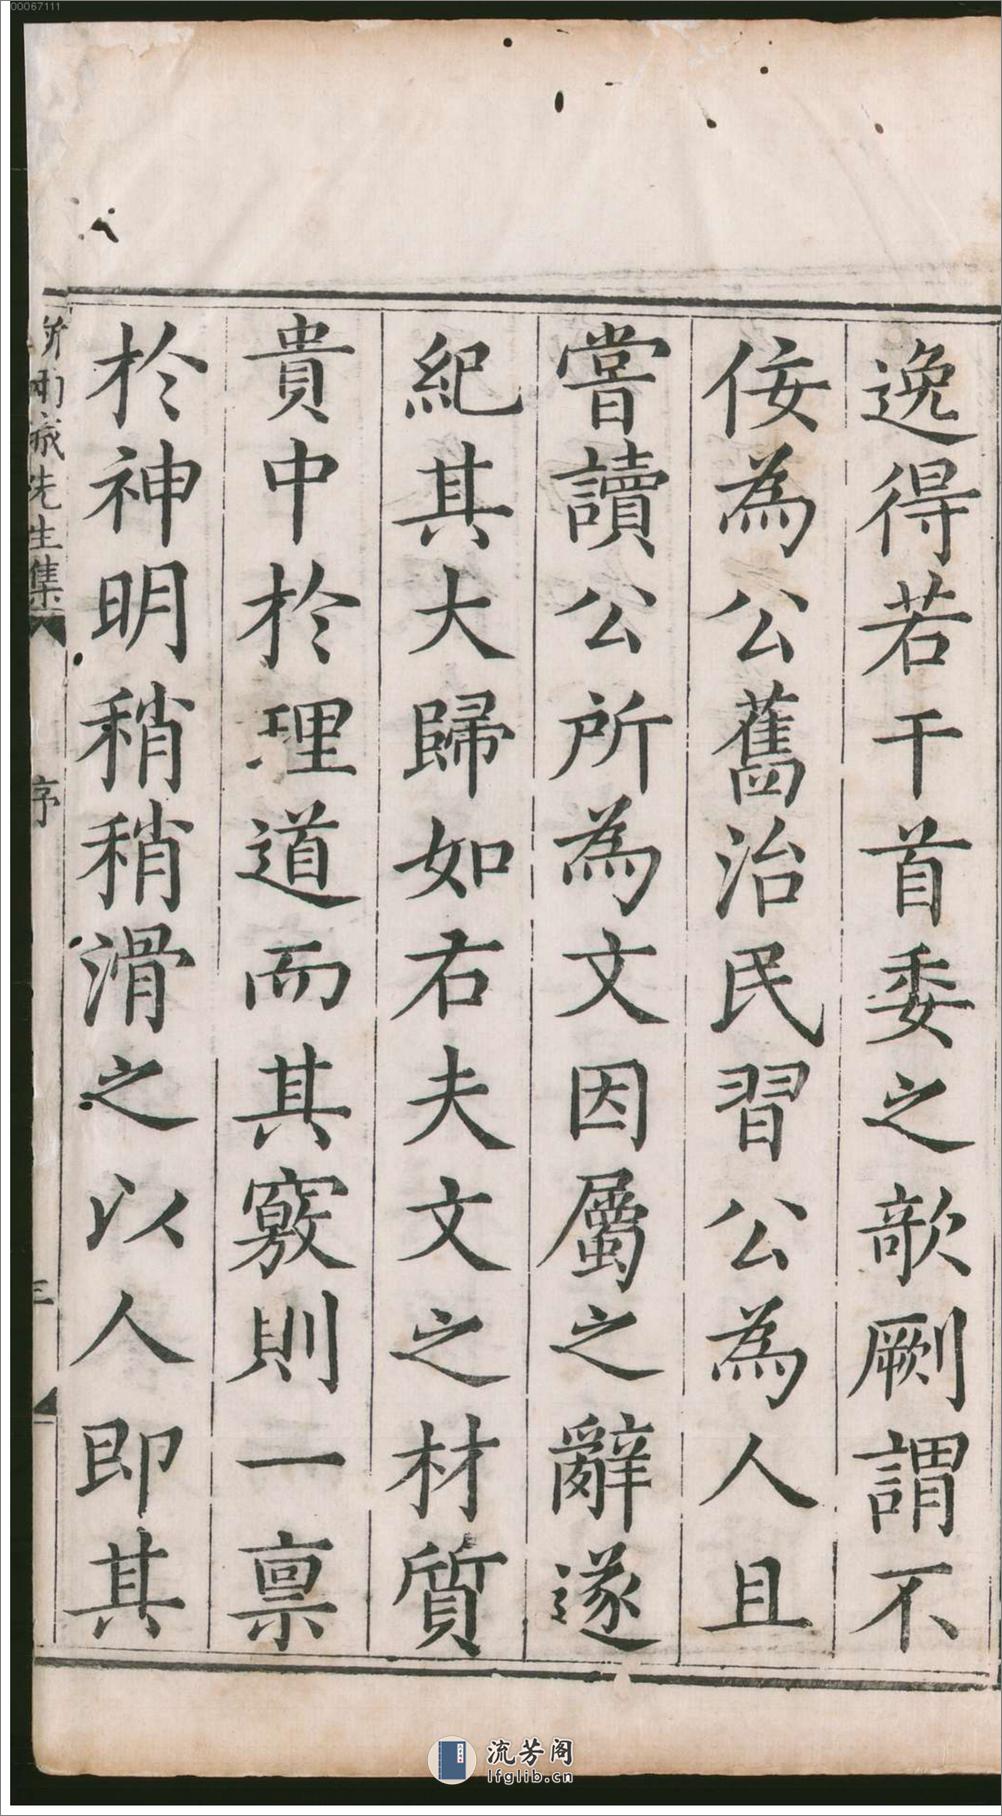 逸得若干首委之歆劂謂不
佞為公舊治民習公為人且
嘗讀公所為文因屬之辭遂
紀其大歸如右夫文之材質
貴中於理道而其竅則一禀
於神明稍稍滑之以人即其
先生集
序
三
00067111
流芳阁
lfglib.cn